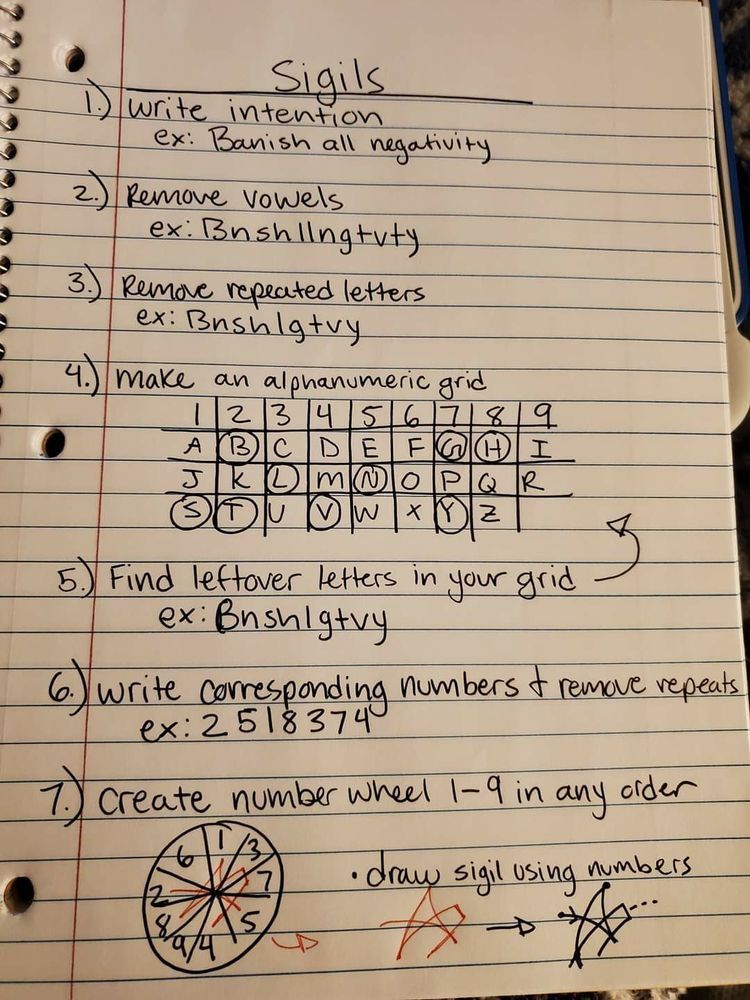 Sigils
1.) Write intention
ex: Banish all negativity
2.) Remove vowels
ex: Bnshllngtvty
3.) Remove repeated letters
ex: Bnshlgtvy
4.) Make an alphanumeric grid
1 2 3 4 5 6 7 8 9
A B C D E F G H I
J K L M N O P Q R
S T U V W X Y Z
5.) Find leftover letters in your grid
ex: Bnshlgtvy
6.) Write corresponding numbers + remove repeats
ex: 2518374
7.) Create number wheel 1-9 in any order
1 3 7 5 4 9 8 2 6
• draw sigil using numbers